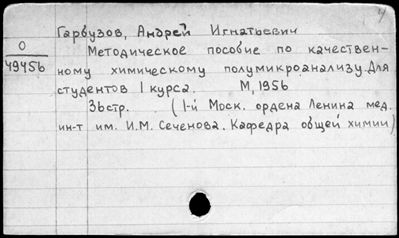 Гарбузов, Андрей Игнатьевич
О
49456
Методическое пособие по качествен-
ному химическому полумикроанализу. Для
студентов I курса. М, 1956
36стр. (1-й Моск. ордена Ленина мед.
ин-т им. И.М. Сеченова. Кафедра общей химии)